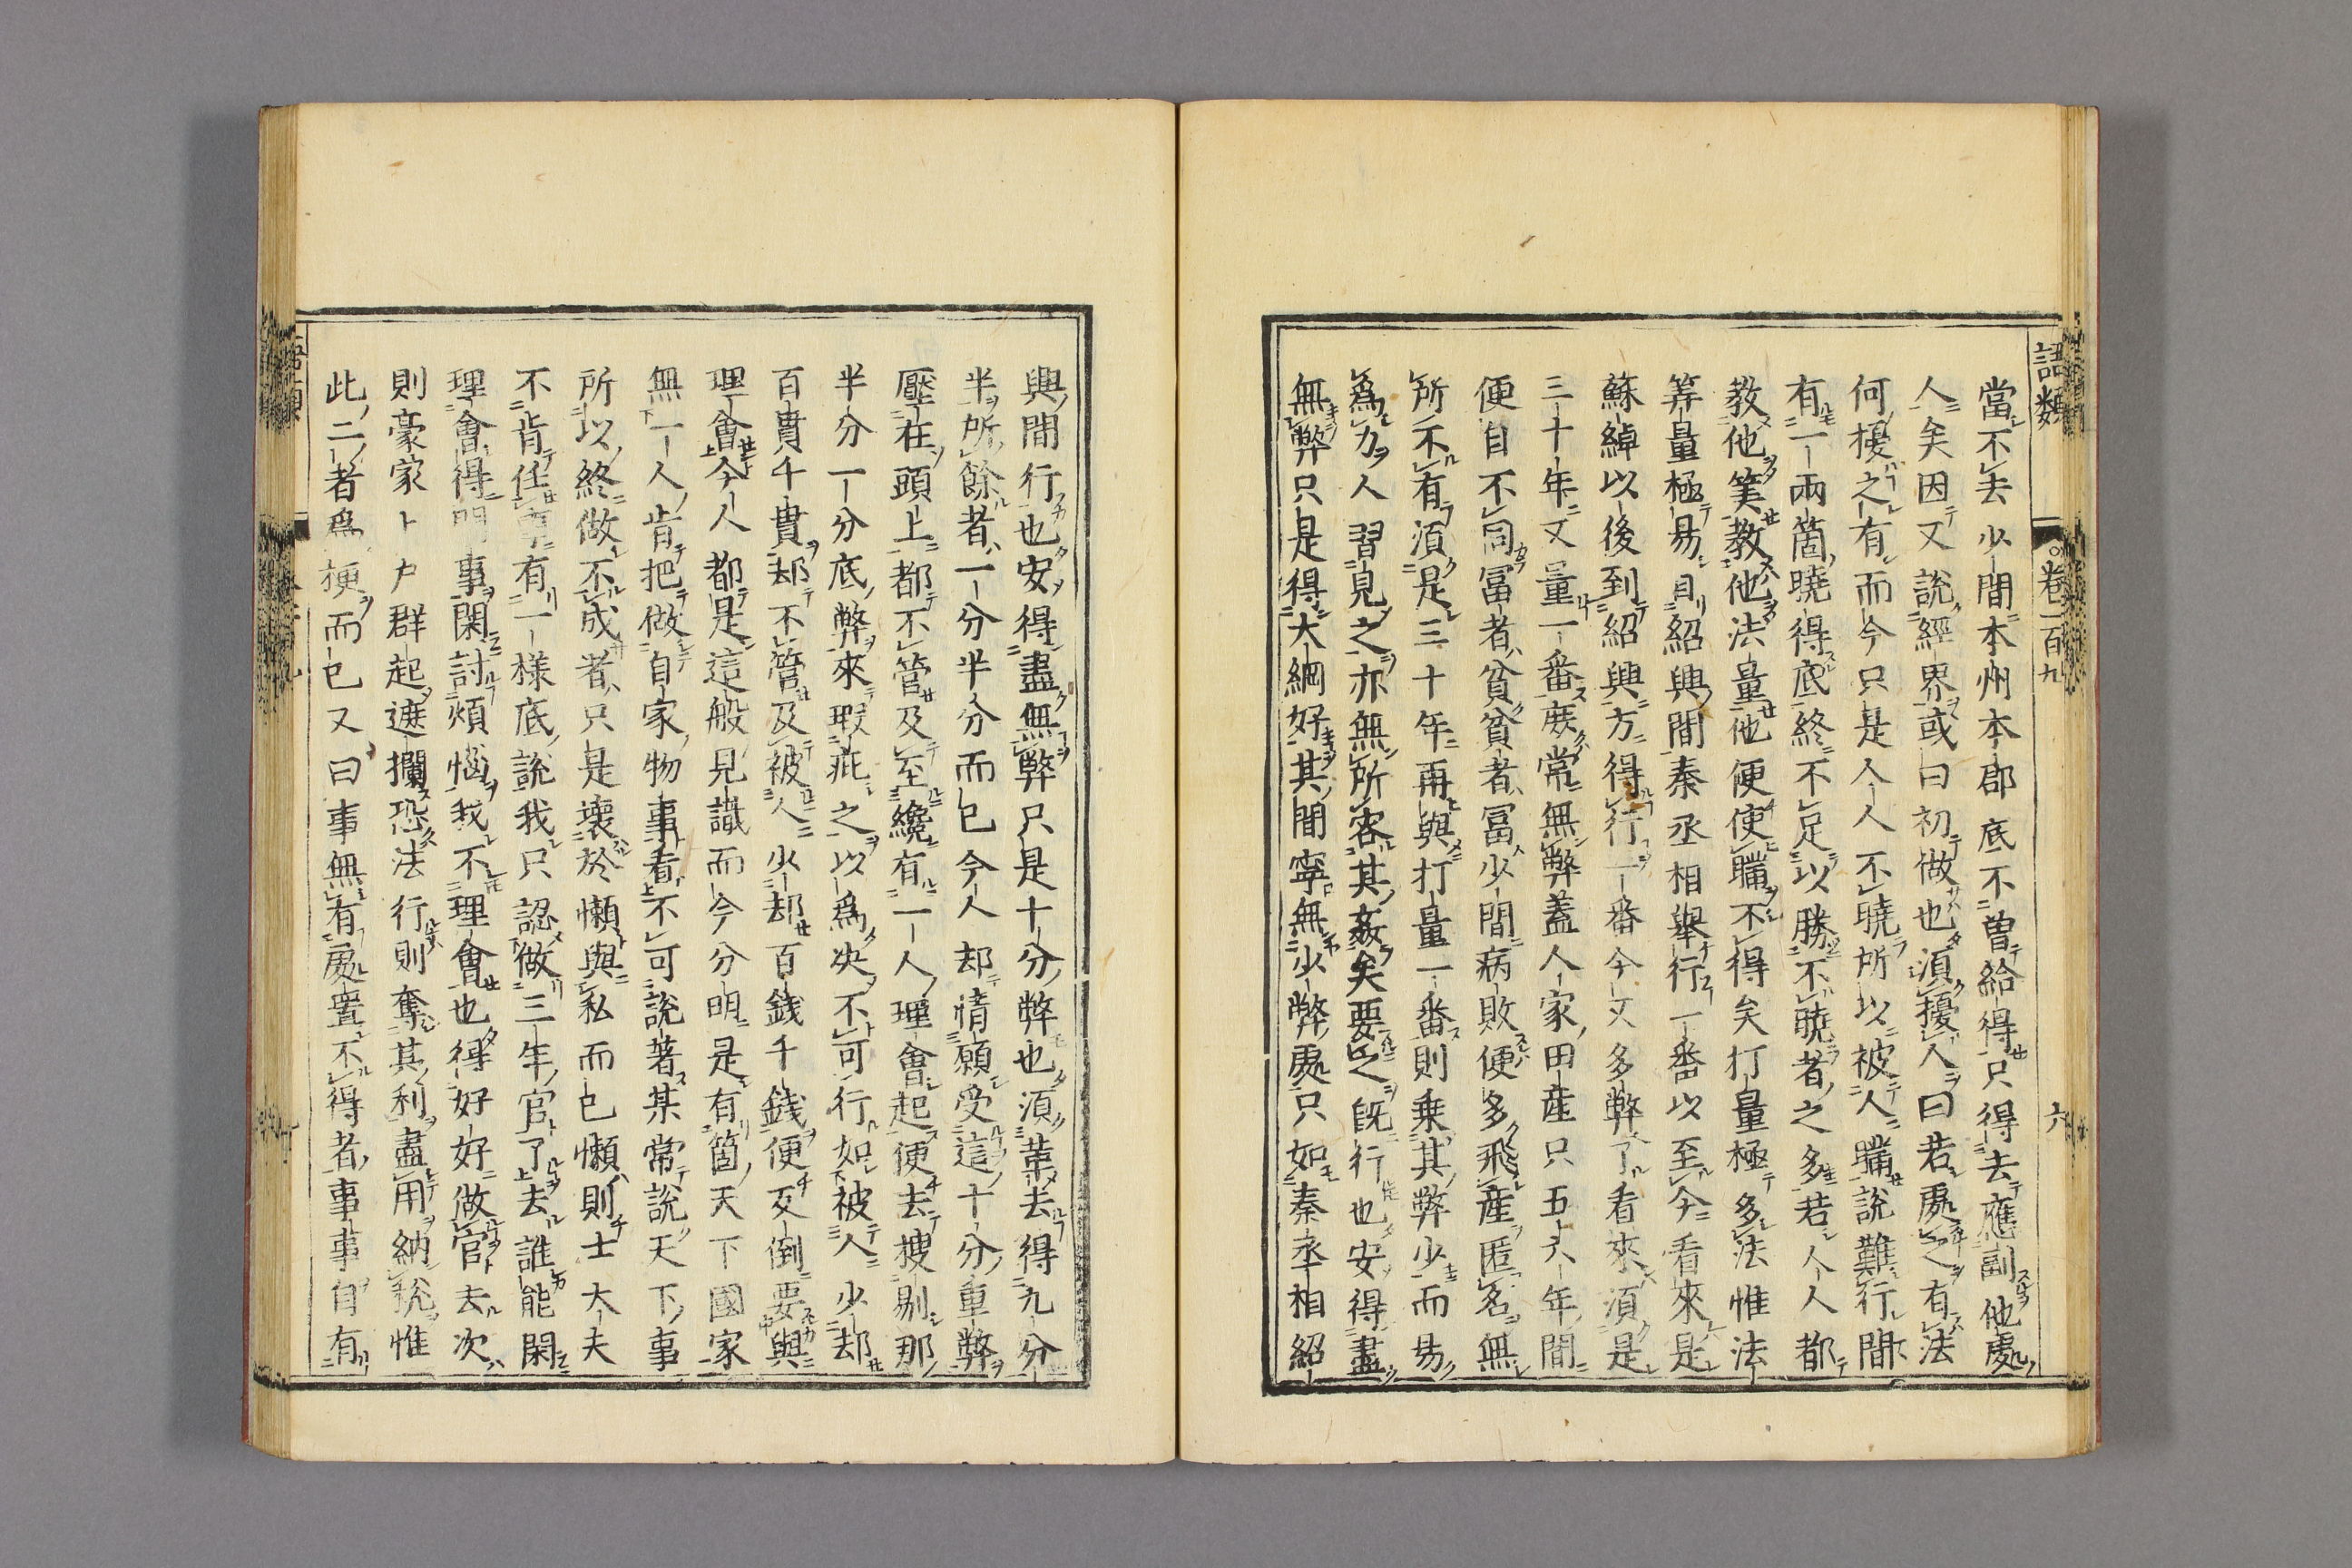 語類
卷一百九
六
當不去少間本州本郡底不曾給得只得去應副他處
人矣因又說經界或曰初做也須擾人曰若處之有法
何擾之有而今只是人人不曉所以被人瞞說難行間
有一兩箇曉得底終不足以勝不曉者之多若人人都
教他筭教他法量他便使瞞不得矣打量極多法惟法
筭量極易自紹興間秦丞相舉行一番以至今看來是
蘇綽以後到紹興方得行一番今又多弊了看來須是
三十年又量一番庶常無弊蓋人家田產只五六年間
便自不同富者貧貧者富少間病敗便多飛產匿名無
所不有須是三十年再與打量一番則乗其弊少而易
為力人習見之亦無所容其姦矣要之既行也安得盡
無弊只是得大綱好其間寧無少弊處只如秦丞相紹
興間行也安得盡無弊只是十分弊也須革去得九分
半所餘者一分半分而已今人却情願受這十分重弊
壓在頭上都不管及至纔有一人理會起便去搜剔那
半分一分底弊來瑕疵之以為決不可行如被人少却
百貫千貫却不管及被人少却百錢千錢便反倒要與
理會今人都是這般見識而今分明是有箇天下國家
無一人肯把做自家物事看不可說著某常說天下事
所以終做不成者只是壞於懶與私而已懶則士大夫
不肯任事有一樣底說我只認做三年官了去誰能閑
理會得閑事閑討煩惱我不理會也得好好做官去次
則豪家上戶群起遮攔恐法行則奪其利盡用納稅惟
此二者為梗而已又曰事無有處置不得者事事自有